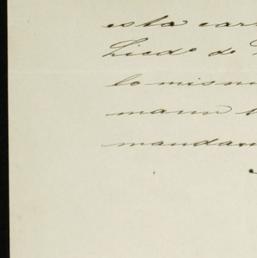 esta car
Licdo de
lo mism
mann
mandam